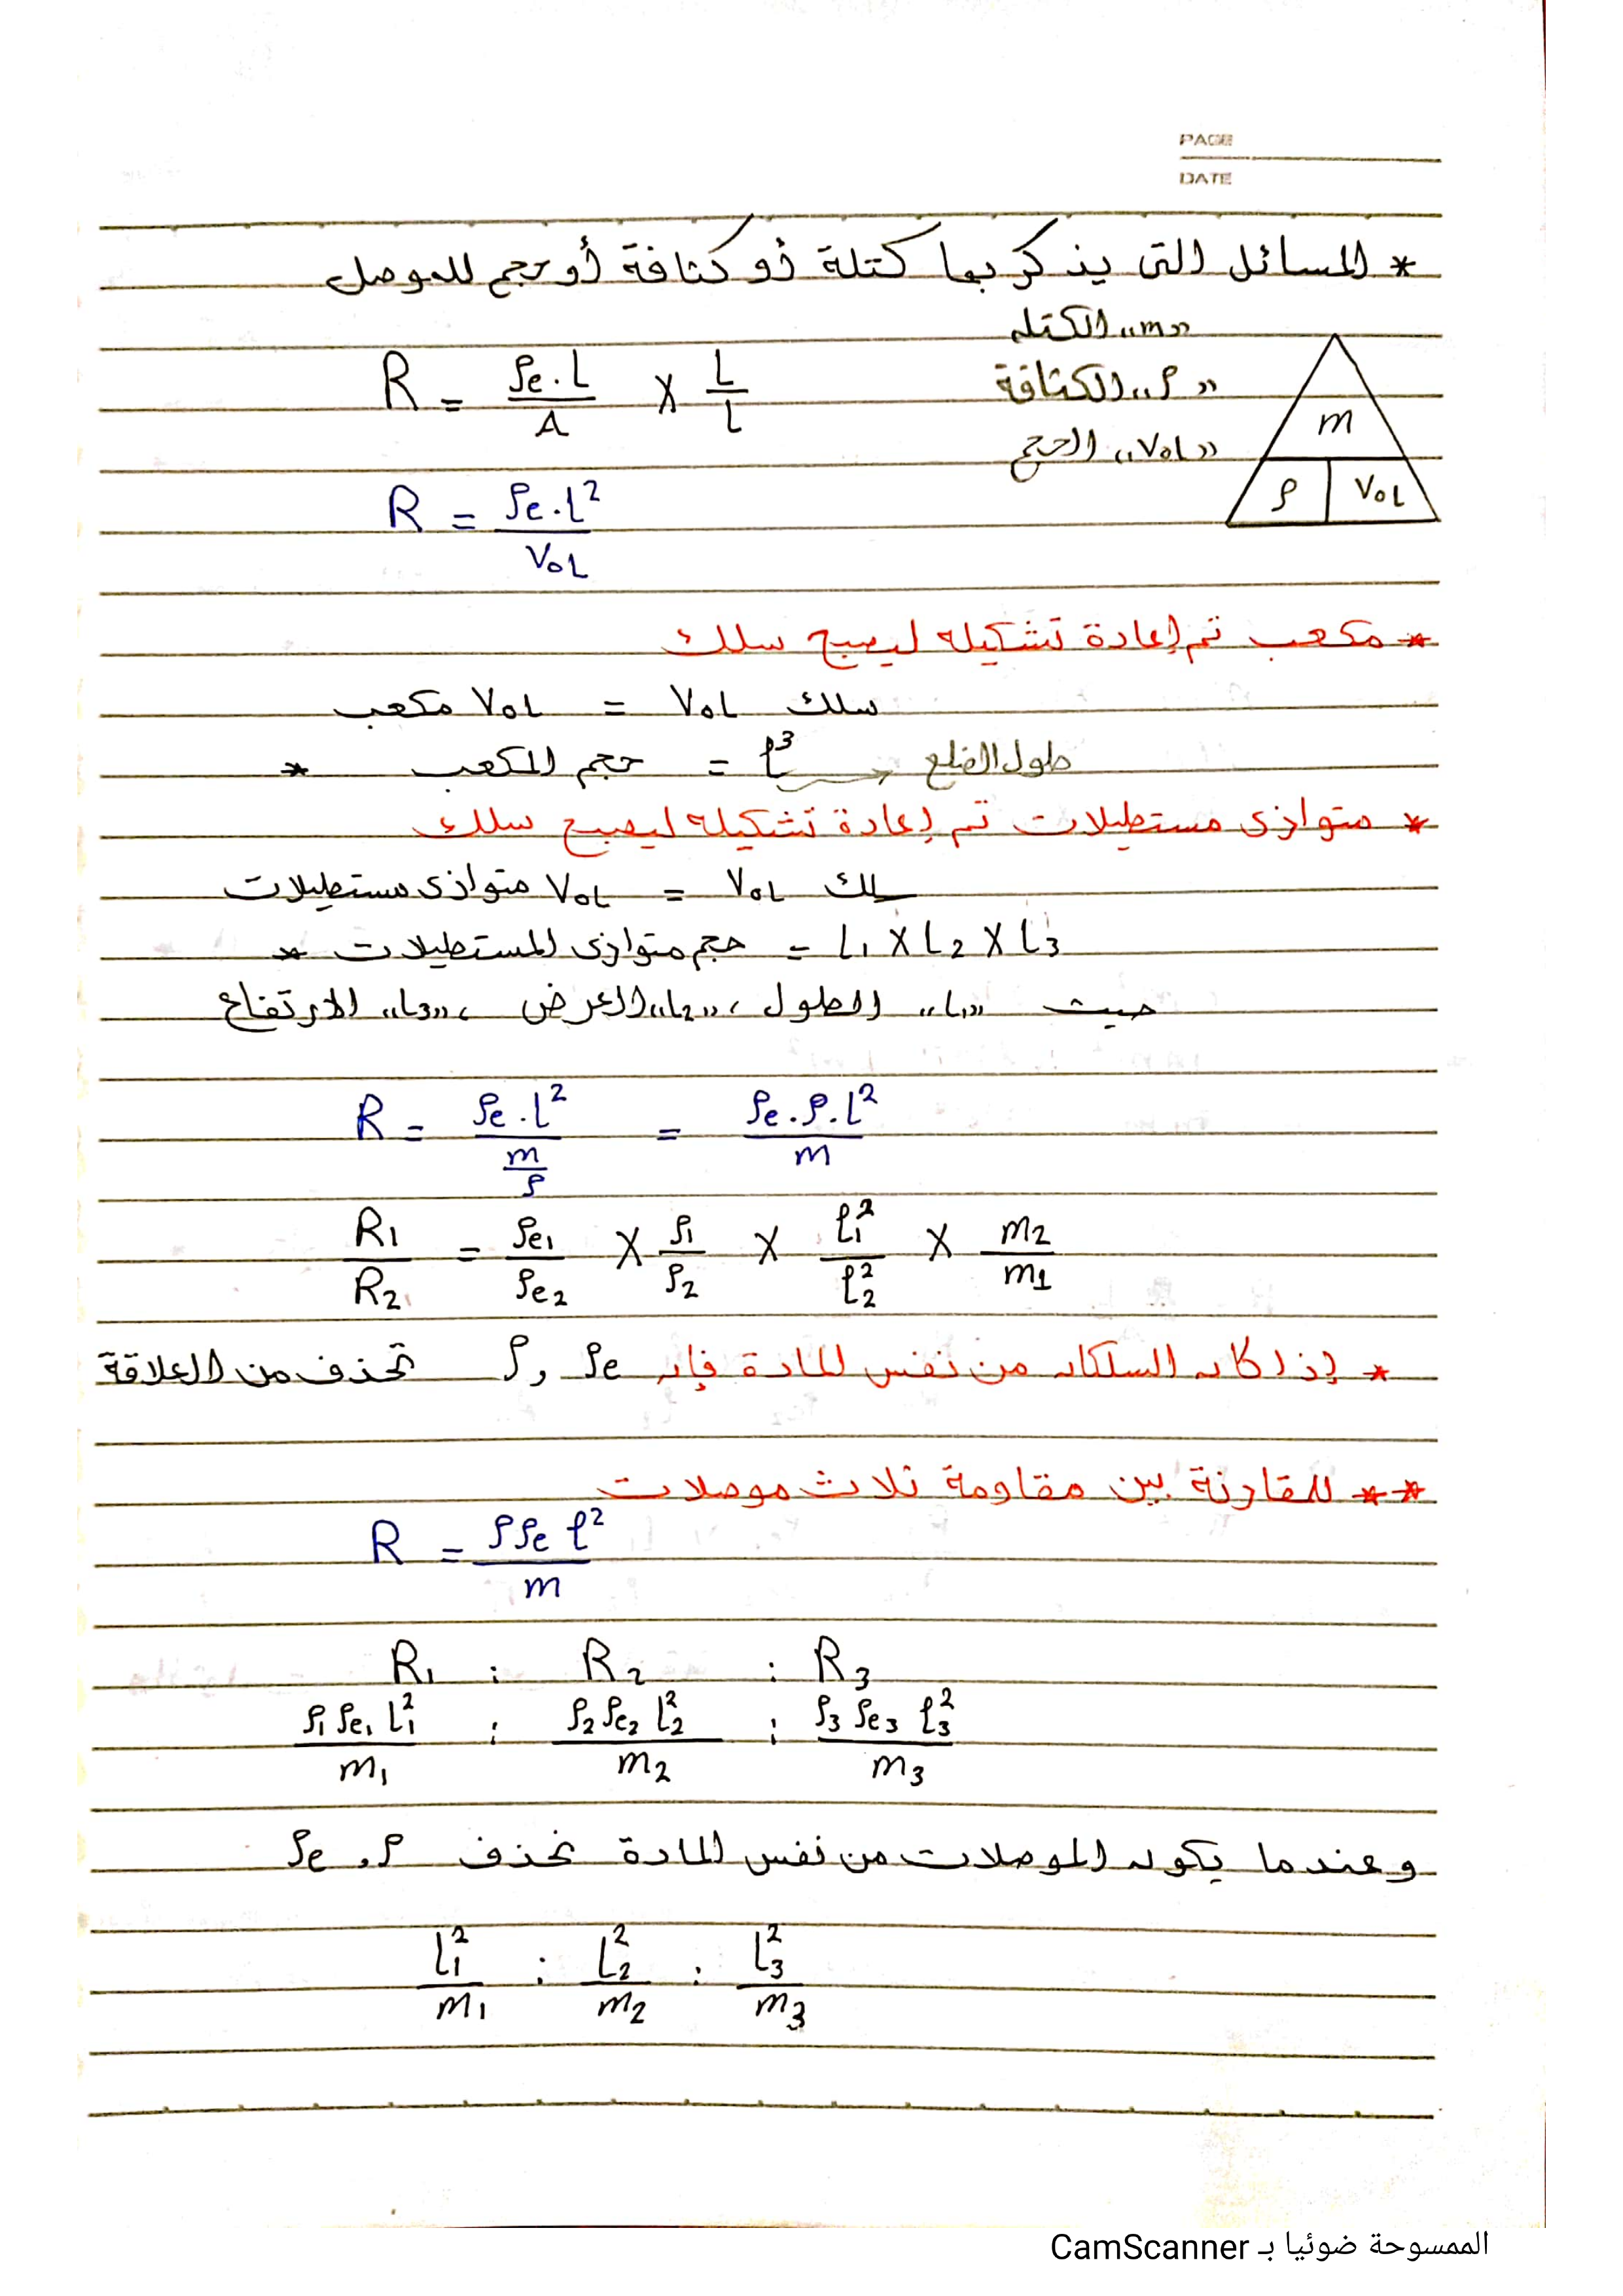 PAGE
DATE
* المسائل التى يذكر بها كتلة أو كثافة أو حجم للموصل
«m» الكتله
R = ρe . L / A × L / L
«ρ» الكثافة
«VoL» الحجم
m
ρ VoL
R = ρe . l² / VoL
* مكعب تم إعادة تشكيله ليصبح سلك
مكعب VoL = VoL سلك
* حجم المكعب = l³ طول الضلع
* متوازى مستطيلات تم إعادة تشكيله ليصبح سلك
متوازى مستطيلات VoL = VoL سلك
* حجم متوازى المستطيلات = L₁ × L₂ × L₃
حيث «L₁» الطول ، «L₂» العرض ، «L₃» الارتفاع
R = ρe . l² / (m / ρ) = ρe . ρ . l² / m
R₁ / R₂ = ρe₁ / ρe₂ × ρ₁ / ρ₂ × l₁² / l₂² × m₂ / m₁
* إذا كان السلكان من نفس المادة فإن ρe و ρ تحذف من العلاقة
** للمقارنة بين مقاومة ثلاث موصلات
R = ρ ρe l² / m
R₁ : R₂ : R₃
ρ₁ ρe₁ l₁² / m₁ : ρ₂ ρe₂ l₂² / m₂ : ρ₃ ρe₃ l₃² / m₃
وعندما يكون الموصلات من نفس المادة نحذف ρ ، ρe
l₁² / m₁ : l₂² / m₂ : l₃² / m₃
الممسوحة ضوئيا بـ CamScanner